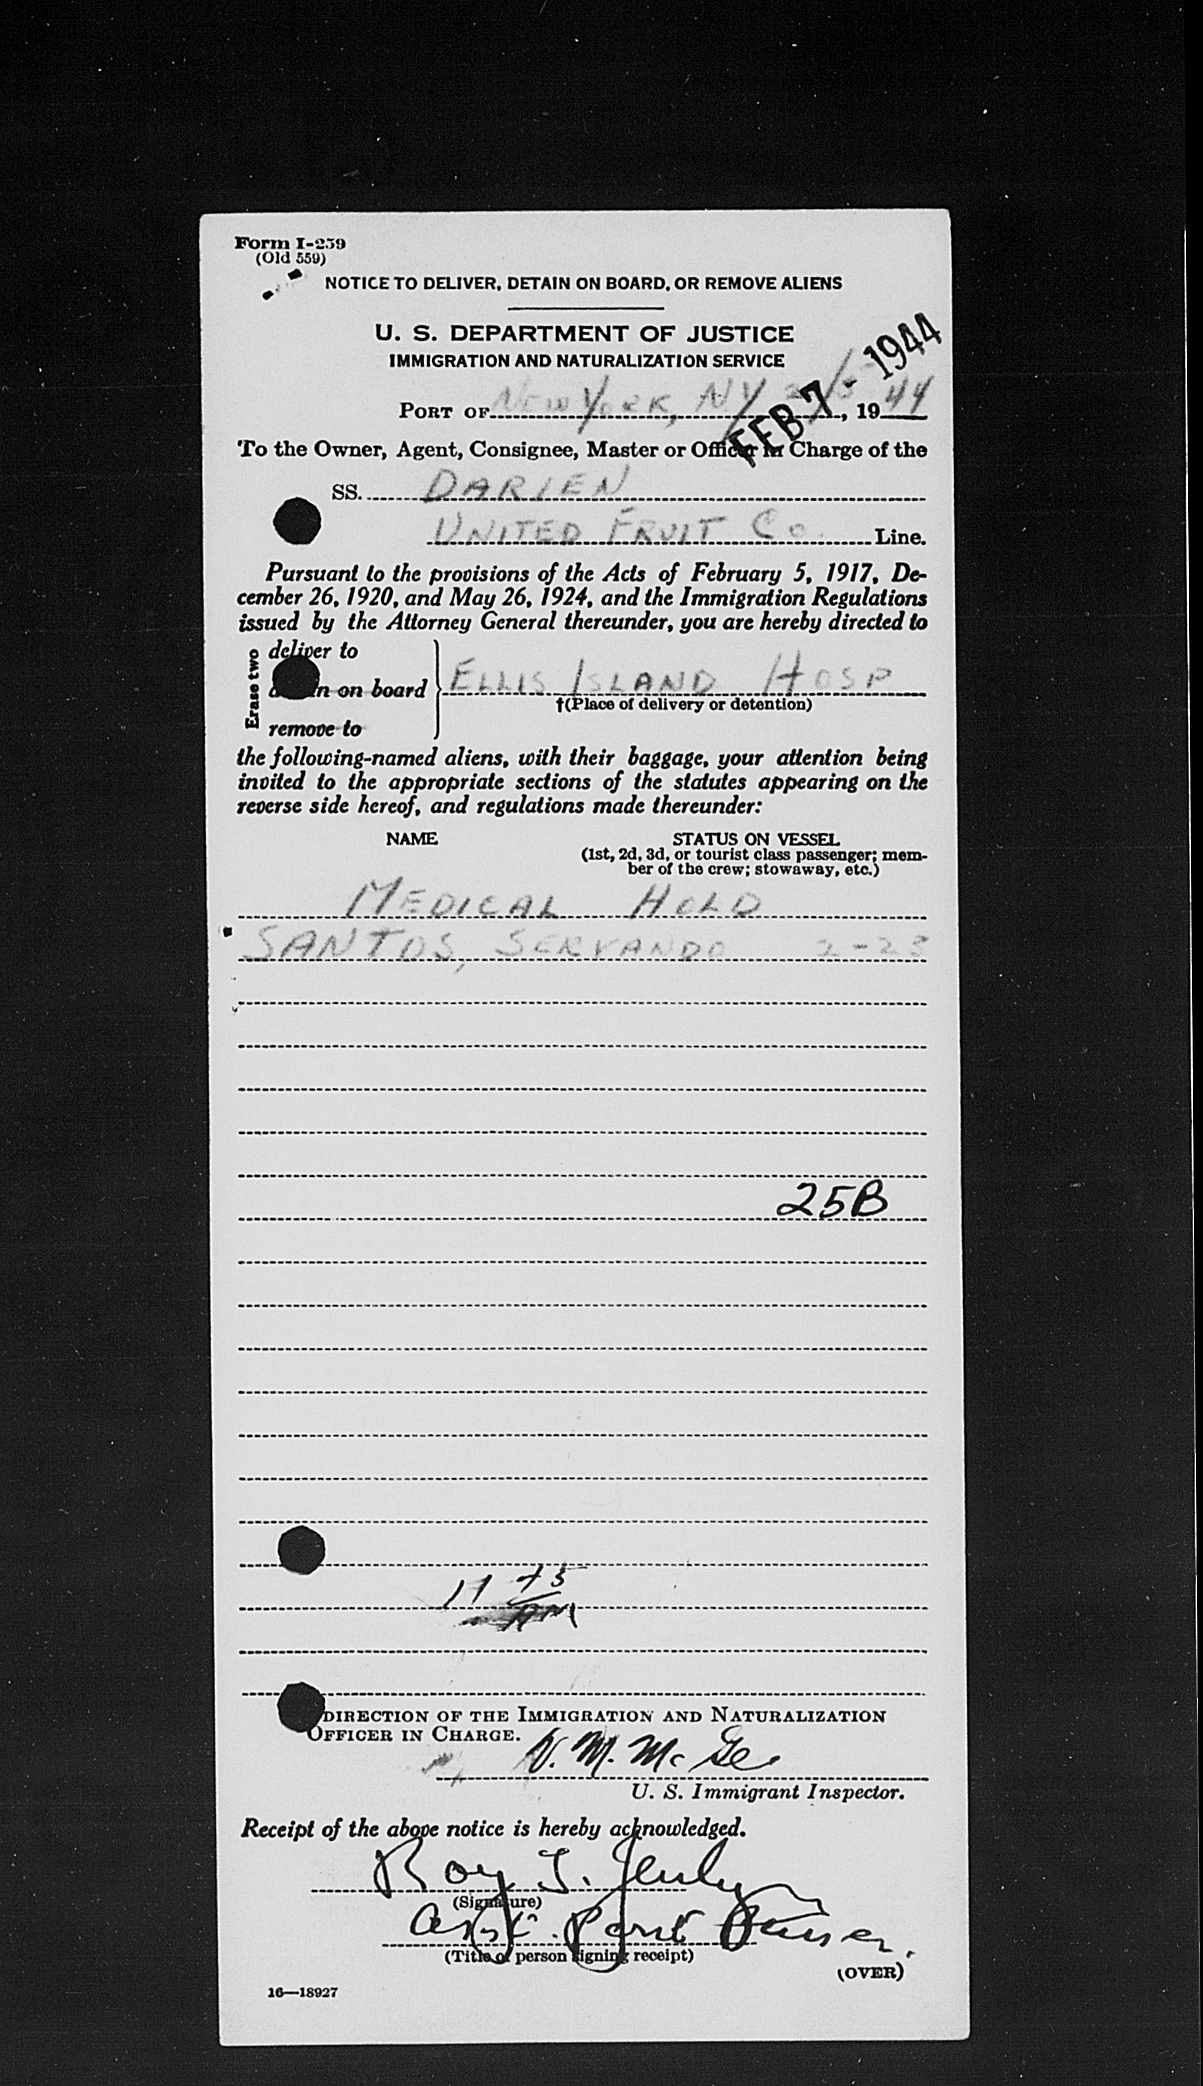 Form I-259
(Old 559)
NOTICE TO DELIVER, DETAIN ON BOARD, OR REMOVE ALIENS
U. S. DEPARTMENT OF JUSTICE
IMMIGRATION AND NATURALIZATION SERVICE
FEB 7 - 1944
PORT OF New York, NY 2/5, 1944
To the Owner, Agent, Consignee, Master or Officer in Charge of the
SS. DARIEN
UNITED FRUIT Co. Line.
Pursuant to the provisions of the Acts of February 5, 1917, De-
cember 26, 1920, and May 26, 1924, and the Immigration Regulations
issued by the Attorney General thereunder, you are hereby directed to
Erase two
deliver to
n on board ELLIS ISLAND HOSP
†(Place of delivery or detention)
remove to
the following-named aliens, with their baggage, your attention being
invited to the appropriate sections of the statutes appearing on the
reverse side hereof, and regulations made thereunder:
NAME STATUS ON VESSEL
(1st, 2d, 3d, or tourist class passenger; mem-
ber of the crew; stowaway, etc.)
MEDICAL HOLD
SANTOS, SERVANDO 2-23
25B
11 45
AM
DIRECTION OF THE IMMIGRATION AND NATURALIZATION
OFFICER IN CHARGE.
V. M. McGee
U. S. Immigrant Inspector.
Receipt of the above notice is hereby acknowledged.
Roy J.
(Signature)
Asst. Port
(Title of person signing receipt)
(OVER)
16—18927